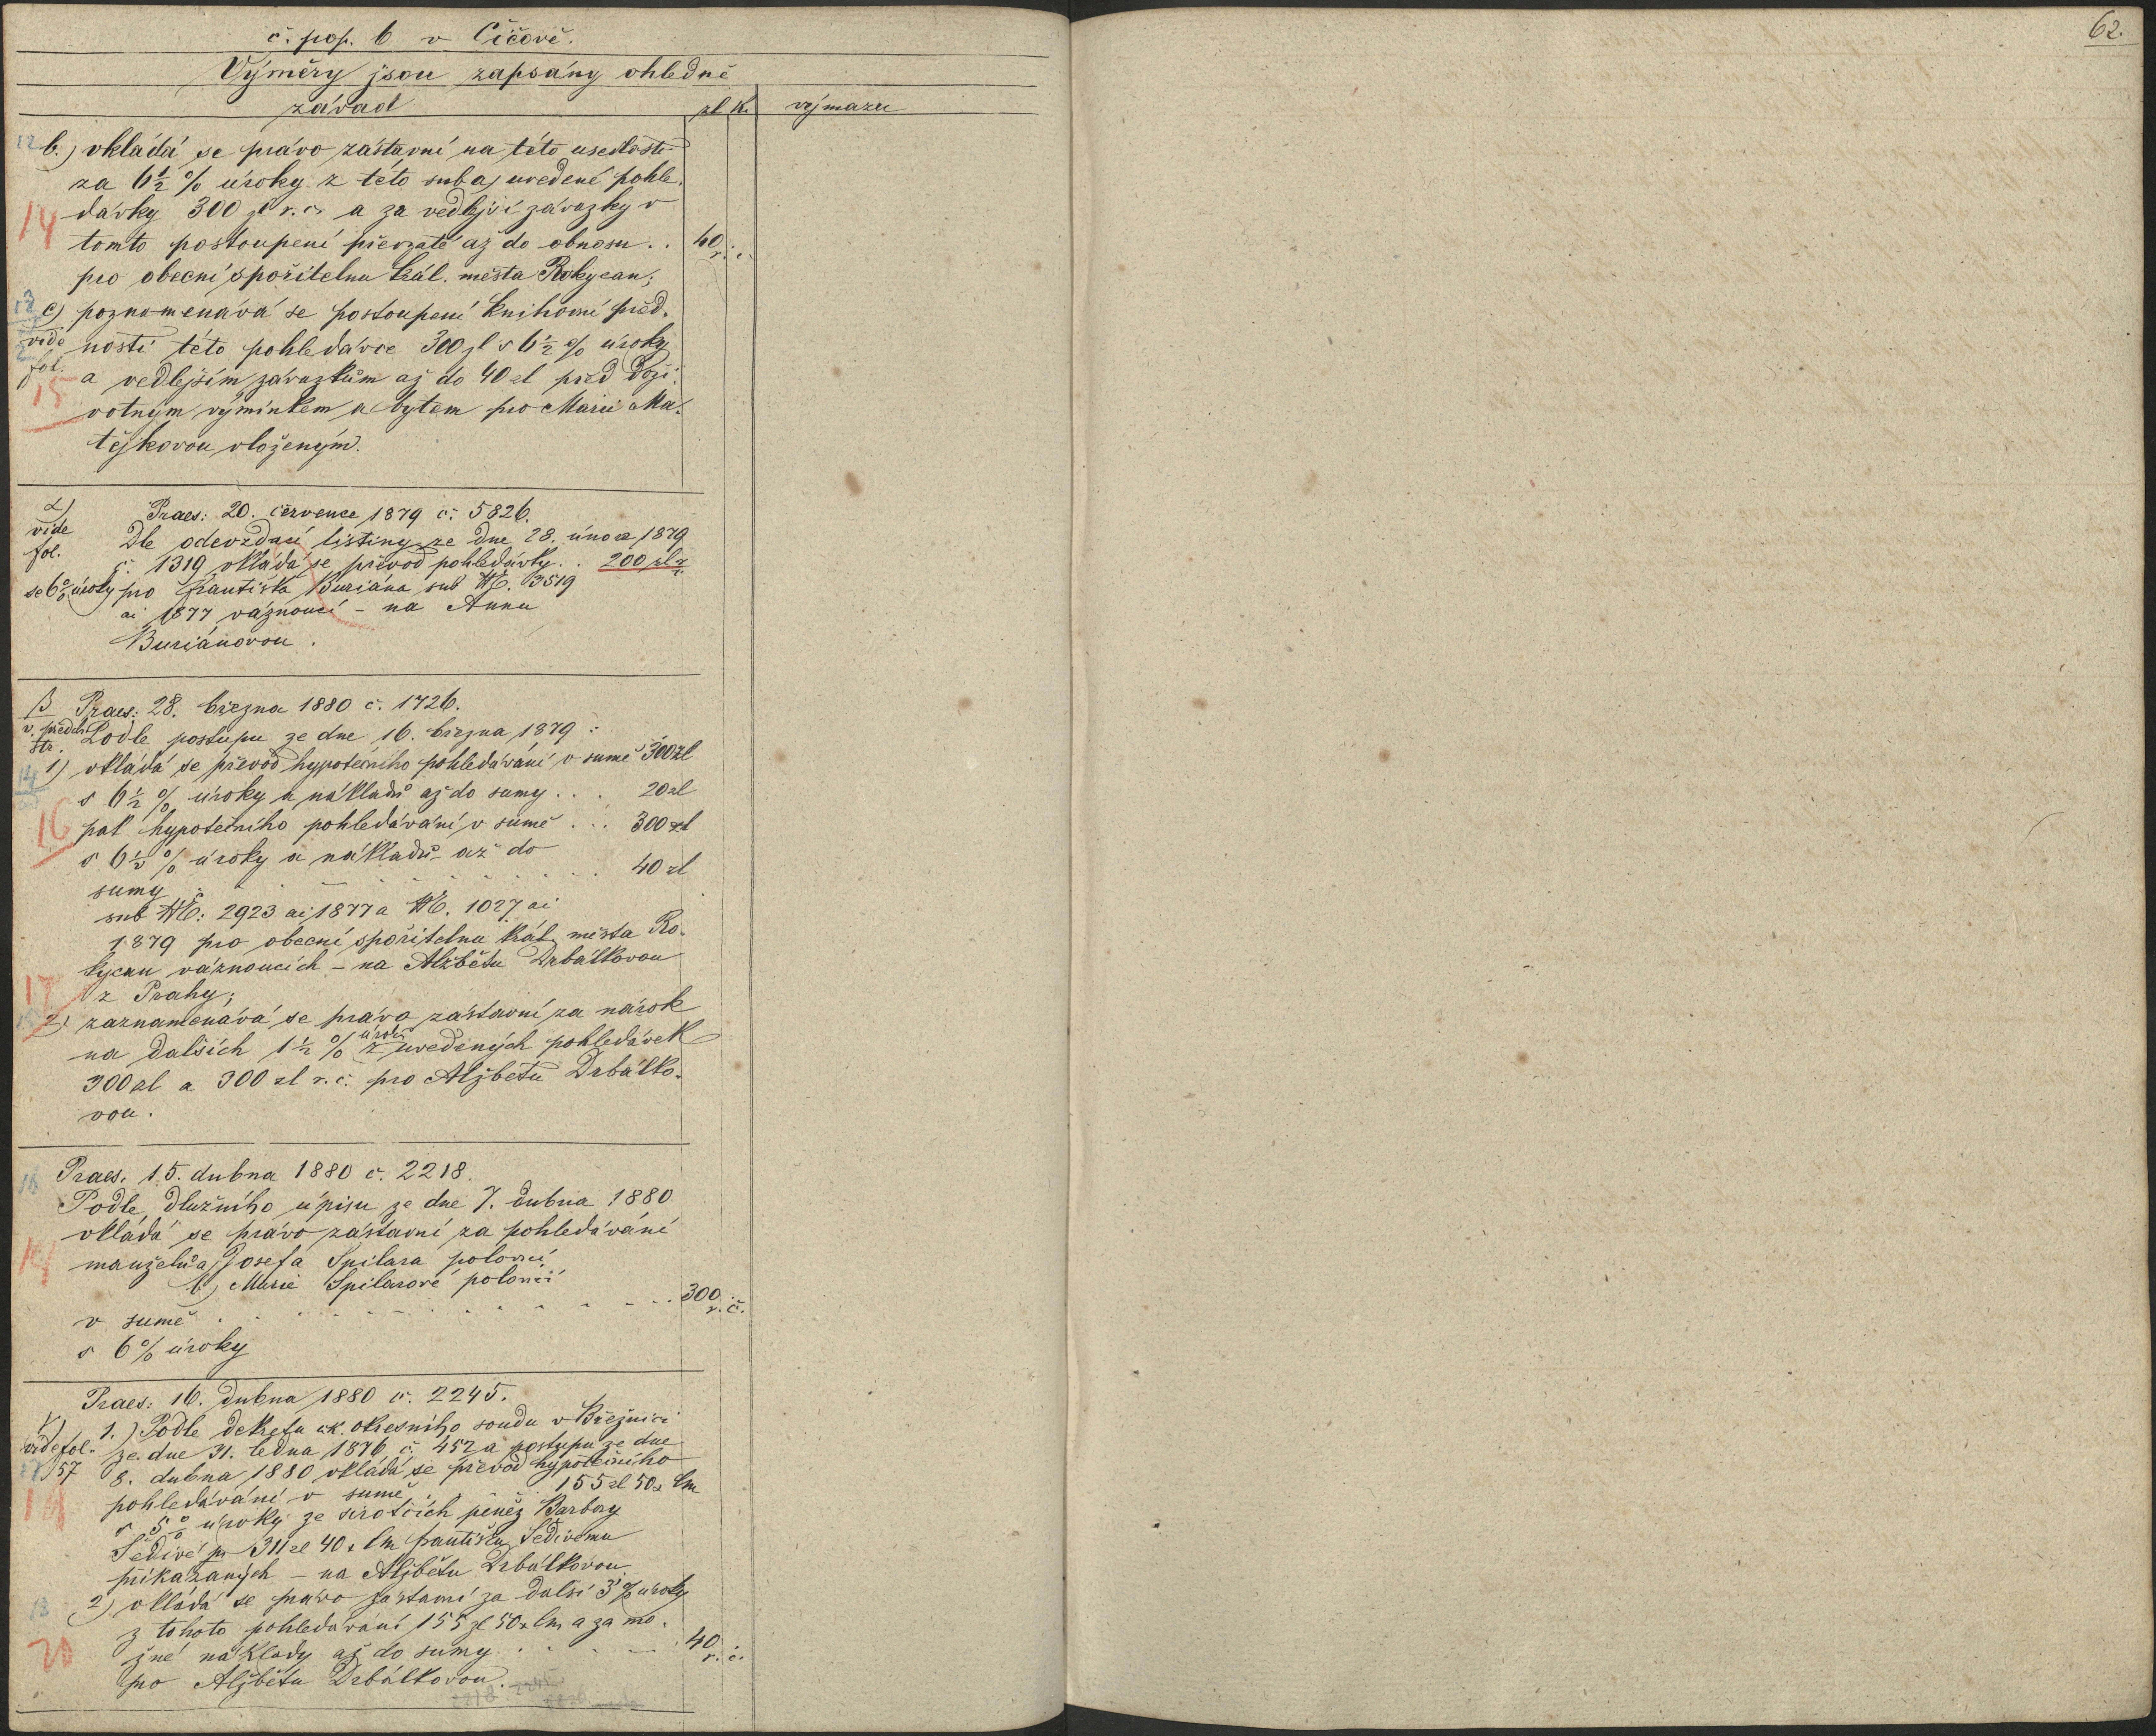 č. pop. 6 v Číčově.
62.
Výměry jsou zapsány ohledně
závad
zl k.
výmazu
12 b.) vkládá se právo zástavní na této usedlosti
za 6½ % úroky z této sub a) uvedené pohle-
dávky 300 zl r. č. a za vedlejší závazky v
14
tomto postoupení převzaté až do obnosu . . 40 r. č.
pro obecní spořitelnu král. města Rokycan;
13 c) poznomenává se postoupení knihovní před-
vide nosti této pohledávce 300 zl s 6½ % úroky
fol. a vedlejším závazkům až do 40 zl před doži-
15
votným výminkem a bytem pro Marii Ma-
tějkovou vloženým.
α) Praes: 20. července 1879 č: 5826.
vide Dle odevzdací listiny ze dne 28. února 1879
fol. č. 1319 vkládá se převod pohledávky . . 200 zl
se 6% úroky pro Františka Buriána sub NE. 3519
ai 1877 váznoucí – na Annu
Buriánovou.
β Praes: 28. března 1880 č. 1726.
v. předch. str. Podle postupu ze dne 16. března 1879 :
14 1) vkládá se převod hypotečního pohledávání v sumě 300 zl
s 6½ % úroky a nákladů až do sumy . . . 20 zl
16
pak hypotečního pohledávání v sumě . . . 300 zl
s 6½ % úroky a nákladů až do
sumy . . . 40 zl
sub NE: 2923 ai 1877 a NE. 1027 ai
1879 pro obecní spořitelnu král. města Ro-
kycan váznoucích – na Alžbětu Drbálkovou
17
z Prahy;
2) zaznamenává se právo zástavní za nárok
na dalších 1½ % úroků z uvedených pohledávek
300 zl a 300 zl r. č. pro Alžbětu Drbálko-
vou.
16 Praes. 15. dubna 1880 č. 2218.
Podle dlužního úpisu ze dne 7. dubna 1880
vkládá se právo zástavní za pohledávání
manželů a) Josefa Spilara polovicí
b) Marie Spilarové polovicí
v sumě . . . 300 r. č.
s 6% úroky
Praes: 16. dubna 1880 č. 2245.
γ) 1.) Podle dekretu ck. okresního soudu v Březnici
vide fol. ze dne 31. ledna 1876 č. 452 a postupu ze dne
57 8. dubna 1880 vkládá se převod hypotečního
pohledávání v sumě . . . 155 zl 50 x
19
s 5% úroky ze sirotčích peněz Barbory
Šedivé pr 311 zl 40 x Františku Šedivému
přikázaných – na Alžbětu Drbálkovou
18 2) vkládá se právo zástavní za další 3% úroky
z tohoto pohledávání 155 zl 50 x a za mo-
20
žné náklady až do sumy . . . 40 r. č.
pro Alžbětu Drbálkovou.
2218 2245